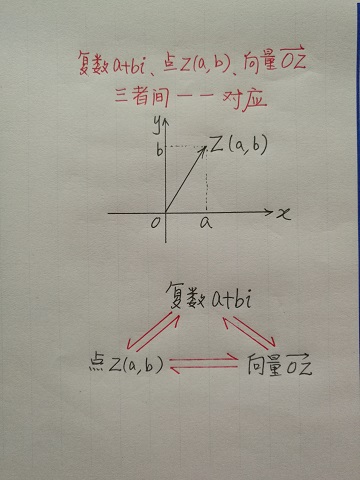 复数a+bi、点Z(a,b)、向量OZ⃗
三者间一一对应
y
b
Z(a,b)
O
a
x
复数a+bi
点Z(a,b)
向量OZ⃗